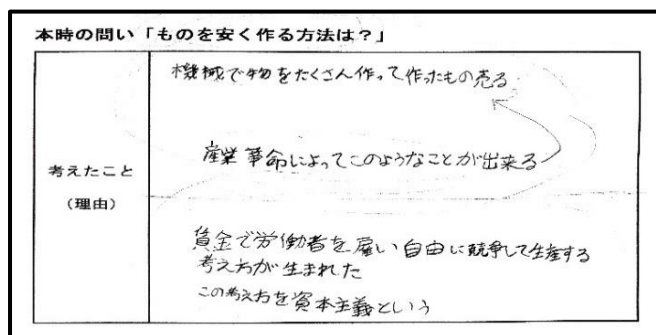 本時の問い「ものを安く作る方法は？」
機械で物をたくさん作って作ったもの売る
産業革命によってこのようなことが出来る
考えたこと
（理由）
賃金で労働者を雇い自由に競争して生産する
考え方が生まれた
この考え方を資本主義という